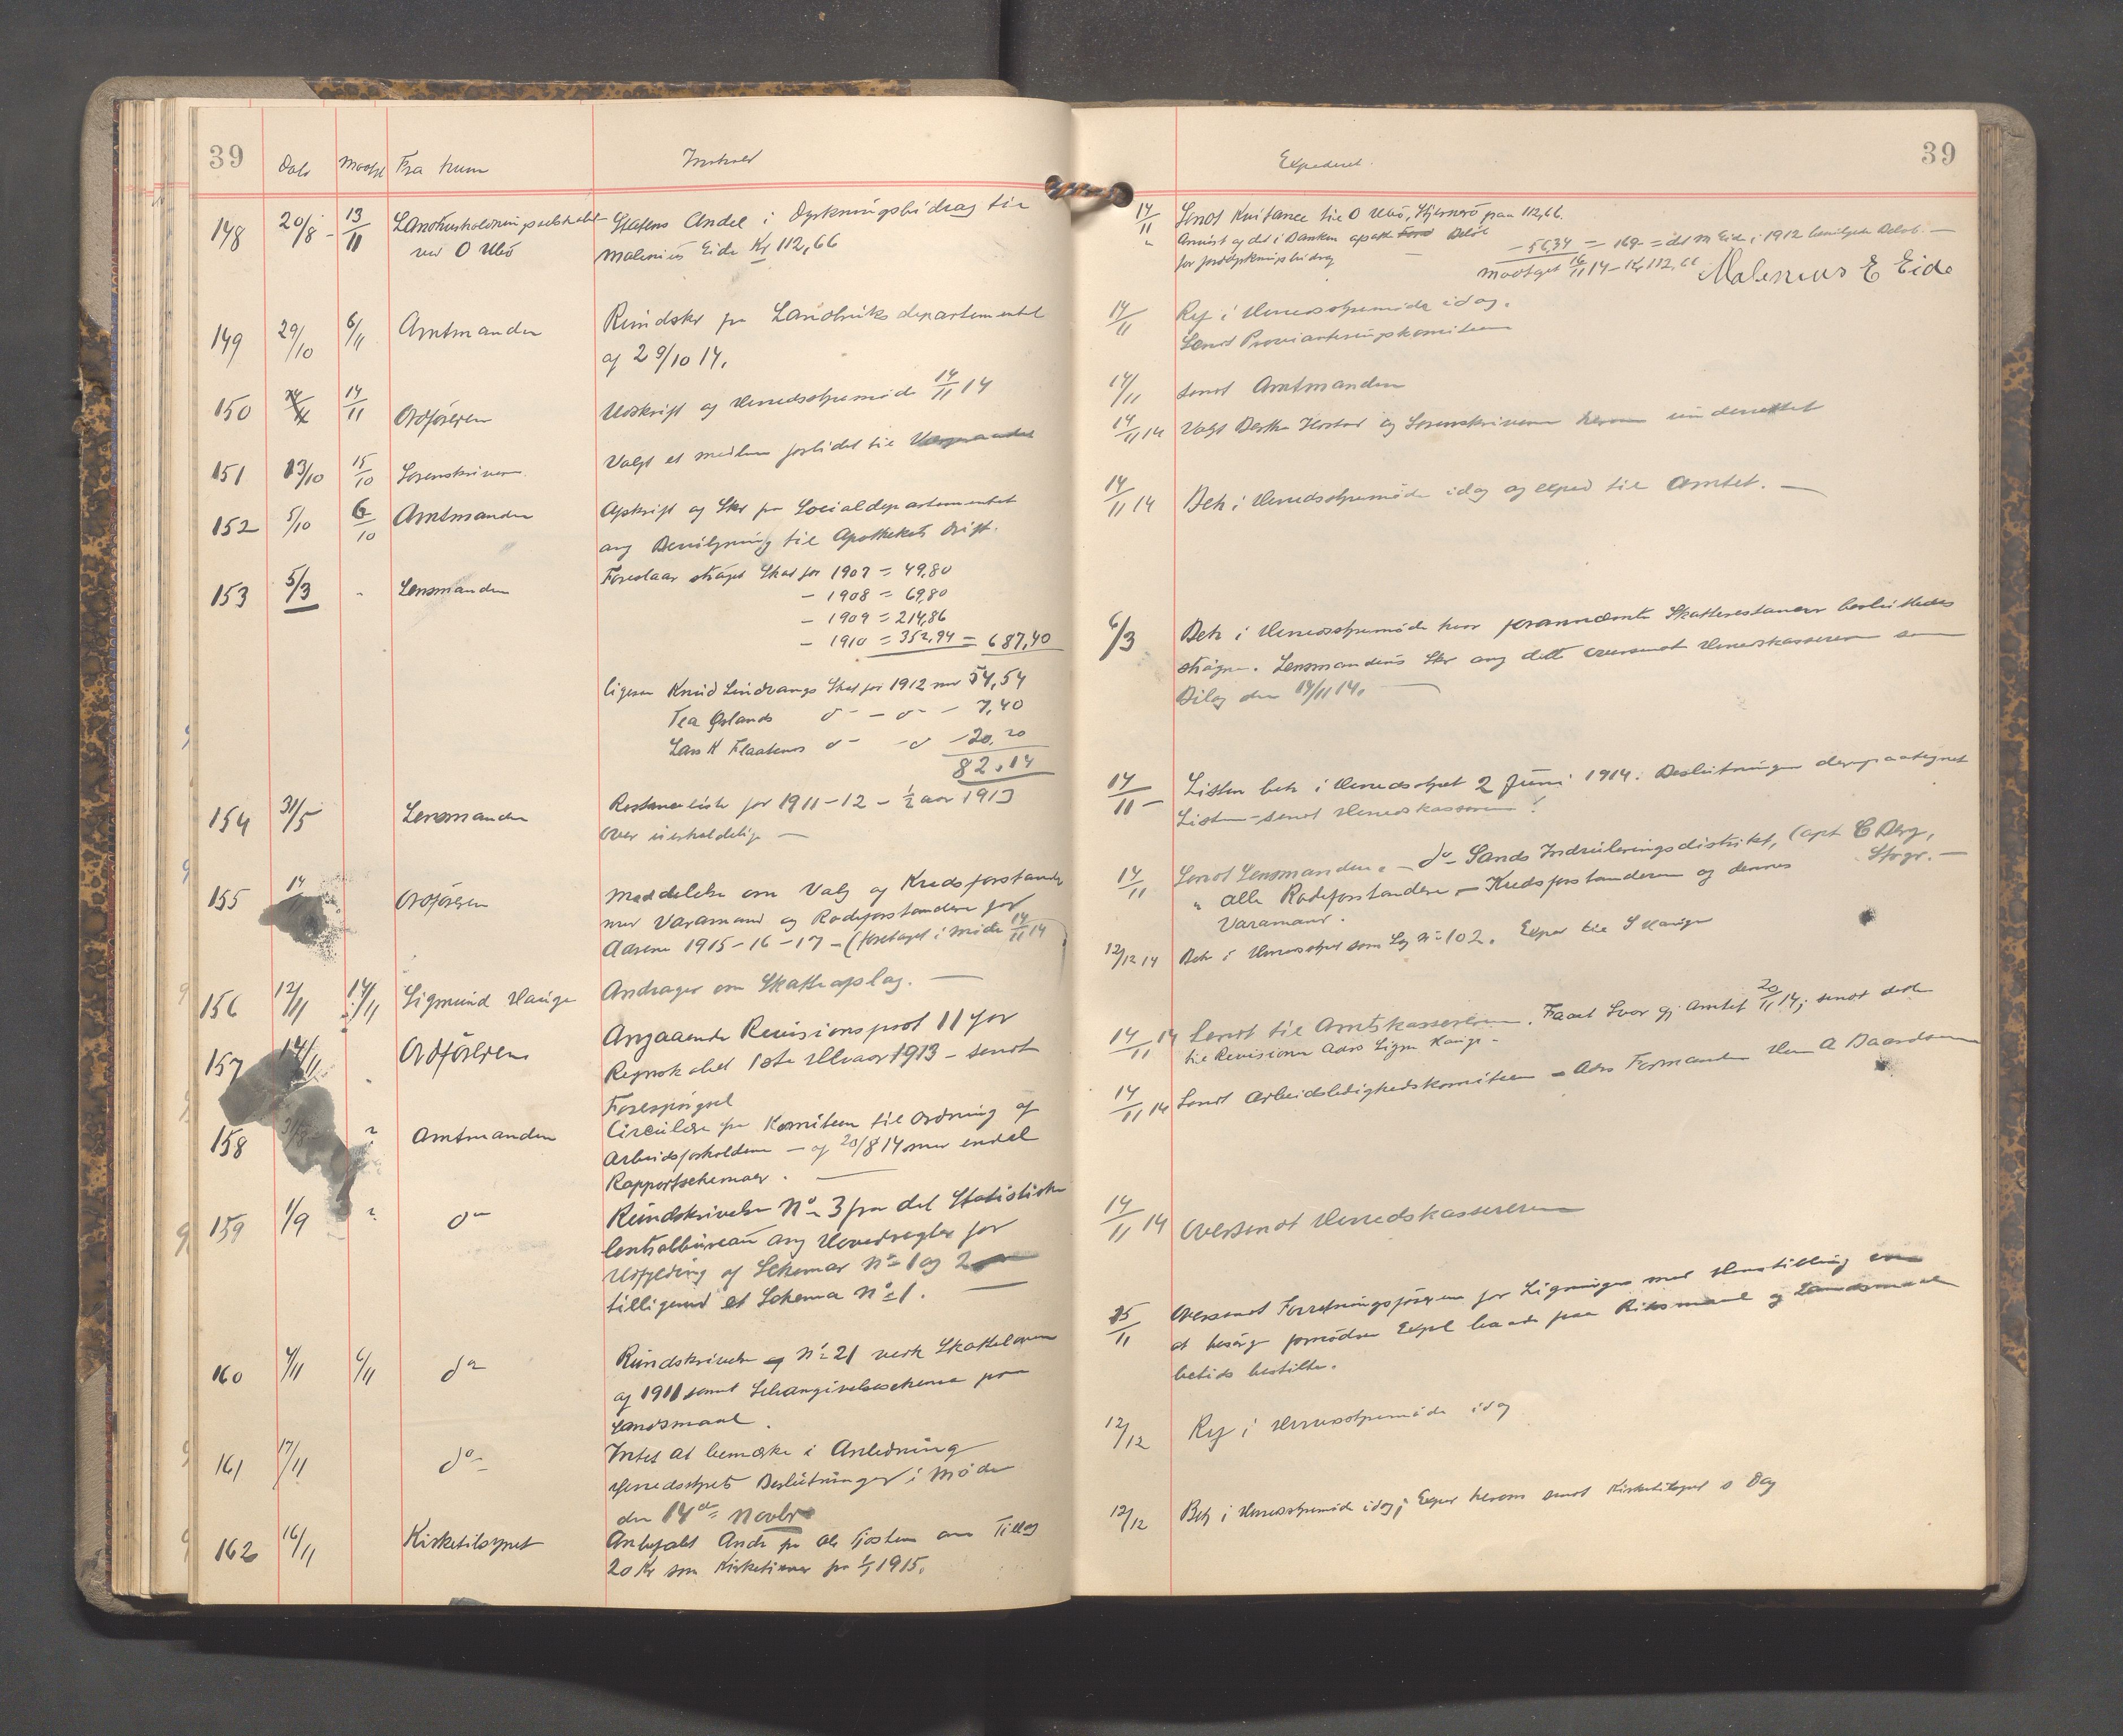 39
Dato Modt Fra hvem Indhold
148 20/8 - 13/11 Landhusholdningsselskabet Statens Andel i Dyrkningsbidrag til
ved O Ubø Malenius Eide Kr 112,66
149 29/10 6/11 Amtmanden Rundskr fra Landbruksdepartementet
af 29/10 14.
150 14/11 Ordføreren Udskrift af Herredsstyremøde 14/11 14
151 13/10 15/10 Sorenskriveren Valgt et medlem forlidet til
152 5/10 6/10 Amtmanden Afskrift af Skr fra Socialdepartementet
ang Bevilgning til Apothekets Drift.
153 5/3 - Lensmanden Foreslaar strøget Skat for 1907 = 49,80
- 1908 = 69,80
- 1909 = 214,86
- 1910 = 352,94 = 687,40
ligesaa Knud Lindvangs Skat for 1912 med 54,54
Tea Ørlands do - do - 7,40
Lars K Flaatenes do - do - 20,20
82,14
154 31/5 Lensmanden Restanceliste for 1911-12 - 1/2 aar 1913
over uerholdelige -
155 14 Ordføreren Meddelelse om Valg af Kredsforstander
med Varamand og Rodeforstandere for
Aarene 1915-16-17 - (foretaget i Møde 14/11 14
156 12/11 14/11 Sigmund Hauge Andrager om Skatteafslag. -
157 14/11 Ordføreren Angaaende Revisionspost 11 for
Regnskabet 1ste Halvaar 1913 - sendt
Forespørgsel
158 31/8 " Amtmanden Circulære fra Komiteen til Ordning af
Arbeidsforholdene - af 20/8 14 med endel
Rapportschemaer. -
159 1/9 " do Rundskrivelse No 3 fra det Statistiske
Centralbureau ang Hovedregler for
Udfylding af Schemar No 1 og 2
tilligemed et Schema No 1. -
160 4/11 6/11 do Rundskrivelse No 21 vedk Skatteloven
af 1911 samt Selvangivelsesschema paa
Landsmaal.
161 17/11 do Intet at bemærke i Anledning
Herredsstyrets Beslutninger i Møde
den 14de Novbr
162 16/11 Kirketilsynet Anbefalet Andr fra Ole Fosten om Tillæg
20 Kr som Kirketjener fra 1/1 1915.
Expederet. 39
14/11 Sendt Kvitance til O Ubø, Stjernerø paa 112,66.
" Anvist af det i Banken afsatte Beløb - 56,34 = 169 - = det M Eide i 1912 bevilgede Beløb. -
for jorddyrkningsbidrag - Modtaget 16/11 14 - Kr 112,66 Malenius E Eide
14/11 Ref i Herredsstyremøde idag.
Sendt Provianteringskomiteen
14/11 Sendt Amtmanden
14/11 14 Valgt og Sorenskriveren underrettet
14/11 14 Beh i Herredsstyremøde idag og exped til Amtet. -
6/3 Beh i Herredsstyremøde hvor forannævnte Skatterestancer besluttedes
strøgne. Lensmandens Skr ang dette oversendt Herredskassereren som
Bilag den 14/11 14. -
14/11 - Listen beh i Herredsstyret 2 Juni 1914. Beslutningen derpaategnet
Listen - sendt Herredskassereren!
14/11 Sendt Lensmanden. - do - Sands Indrulleringsdistrikt, Capt C Berg,
" alle Rodeforstandere - Kredsforstanderen og dennes Stvgr. -
Varamand.
12/12 14 Beh i Herredsstyret som Sag No 102. Exped til S Hauge
14/11 14 Sendt til Amtskassereren. Faaet Svar gj Amtet 20/11 14; sendt dette
til Revisionen Adrs Sigm Hauge -
14/11 14 Sendt Arbeidsledighedskomiteen - Adrs Formanden Hr A Baardsen
14/11 14 Oversendt Herredskassereren
25/11 Oversendt Forretningsføreren for Ligningen med Henstilling om
at besørge fornødne Expl baade paa Riksmaal og Landsmaal
betids bestilte.
12/12 Ref i Herredsstyremøde idag
12/12 Beh i Herredsstyremøde idag; Exped herom sendt Kirketilsynet s Dag